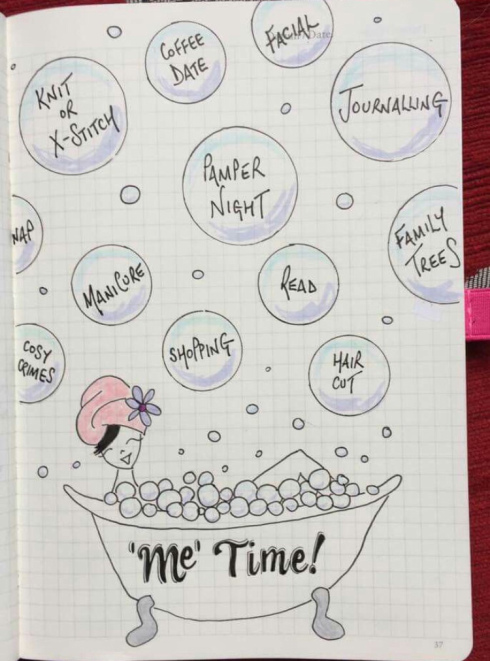 COFFEE
DATE
FACIAL
Date
KNIT
OR
X-STITCH
JOURNALLING
PAMPER
NIGHT
NAP
FAMILY
TREES
MANICURE
READ
COSY
CRIMES
SHOPPING
HAIR
CUT
'Me' Time!
37